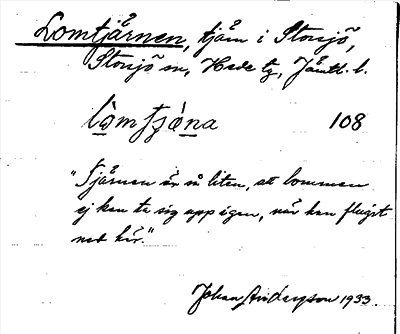 Lomtjärnen, tjärn i Storsjö,
Storsjö sn, Hede tg, Jämtl. l.
lòmtjä̀na 108
"Tjärnen är så liten, att lommen
ej kan ta sig upp igen, när han flugit
ned här."
Johan Anderzson 1933.